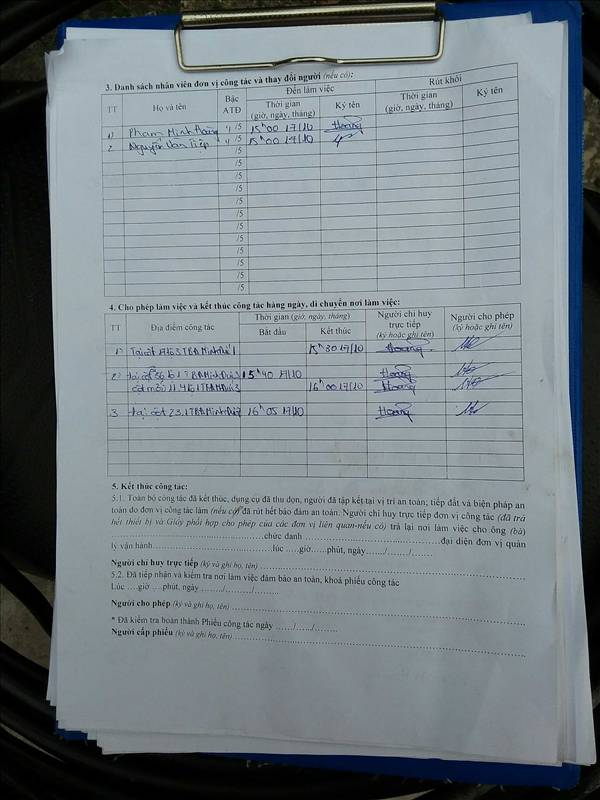 3. Danh sách nhân viên đơn vị công tác và thay đổi người (nếu có):
TT Họ và tên Bậc ATĐ Đến làm việc Rút khỏi
Thời gian (giờ, ngày, tháng) Ký tên Thời gian (giờ, ngày, tháng) Ký tên
1) Phạm Minh Hoàng 4/5 15h00 17/10 Hoàng
2 Nguyễn Văn Tiếp 4/5 15h00 17/10
/5
/5
/5
/5
/5
/5
/5
/5
/5
/5
/5
4. Cho phép làm việc và kết thúc công tác hàng ngày, di chuyển nơi làm việc:
TT Địa điểm công tác Thời gian (giờ, ngày, tháng) Người chỉ huy trực tiếp (ký hoặc ghi tên) Người cho phép (ký hoặc ghi tên)
Bắt đầu Kết thúc
1) Tại cột TBA Minh Đức 1 15h30 17/10 Hoàng
2) tại cột TBA Minh Đức 15h40 17/10 Hoàng
cột TBA Minh Đức 3 16h00 17/10 Hoàng
3 tại cột 23.1 TBA Minh Đức 16h05 17/10 Hoàng
5. Kết thúc công tác:
5.1. Toàn bộ công tác đã kết thúc, dụng cụ đã thu dọn, người đã tập kết tại vị trí an toàn; tiếp đất và biện pháp an
toàn do đơn vị công tác làm (nếu có) đã rút hết bảo đảm an toàn. Người chỉ huy trực tiếp đơn vị công tác (đã trả
hết thiết bị và Giấy phối hợp cho phép của các đơn vị liên quan-nếu có) trả lại nơi làm việc cho ông (bà)
chức danh đại diện đơn vị quản
lý vận hành lúc ....giờ.....phút, ngày....../......./.......
Người chỉ huy trực tiếp (ký và ghi họ, tên)
5.2. Đã tiếp nhận và kiểm tra nơi làm việc đảm bảo an toàn, khoá phiếu công tác
Lúc ....giờ ....phút, ngày ......../........./.........
Người cho phép (ký và ghi họ, tên)
* Đã kiểm tra hoàn thành Phiếu công tác ngày ....../....../........
Người cấp phiếu (ký và ghi họ, tên)